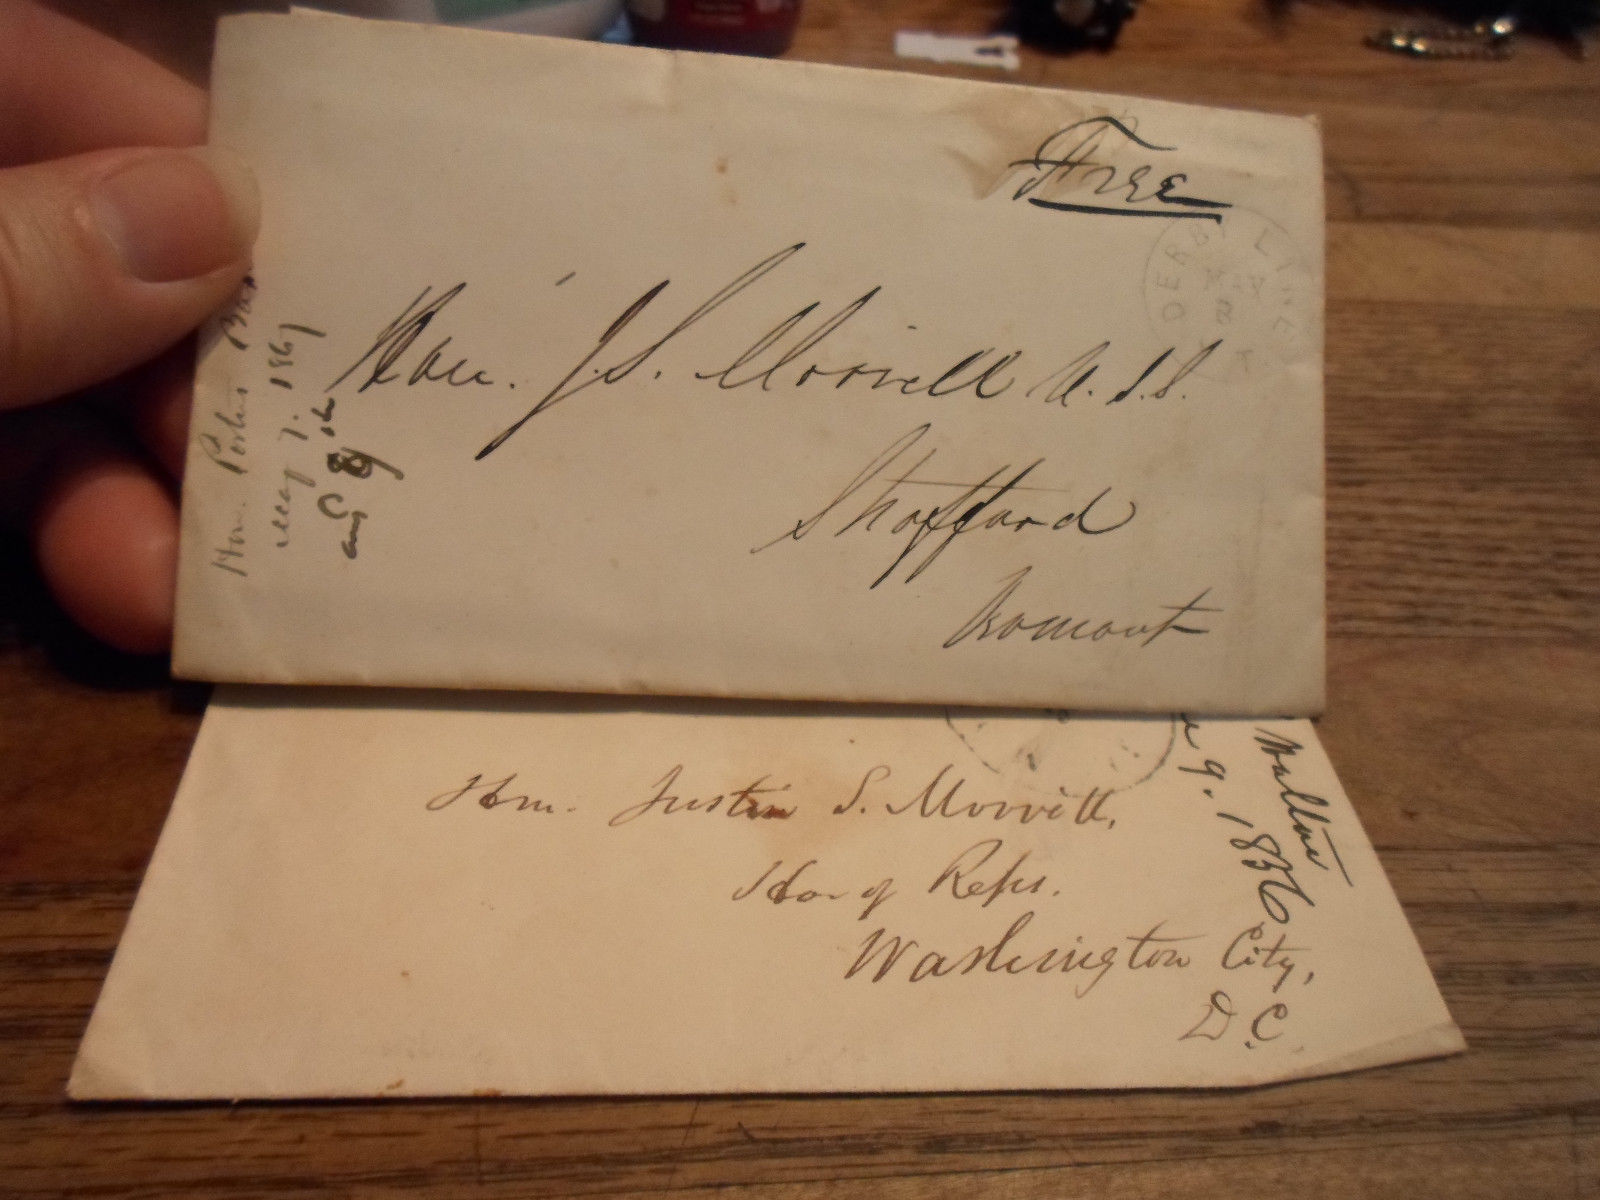 Free
DERBY LINE
Hon. J. S. Morrill U.S.S.
Strafford
Vermont
Hon. Portus Bax
1867
Hon. Justin S. Morrill,
Ho. of Reps.
Washington City,
D.C.
Walton
9. 1856